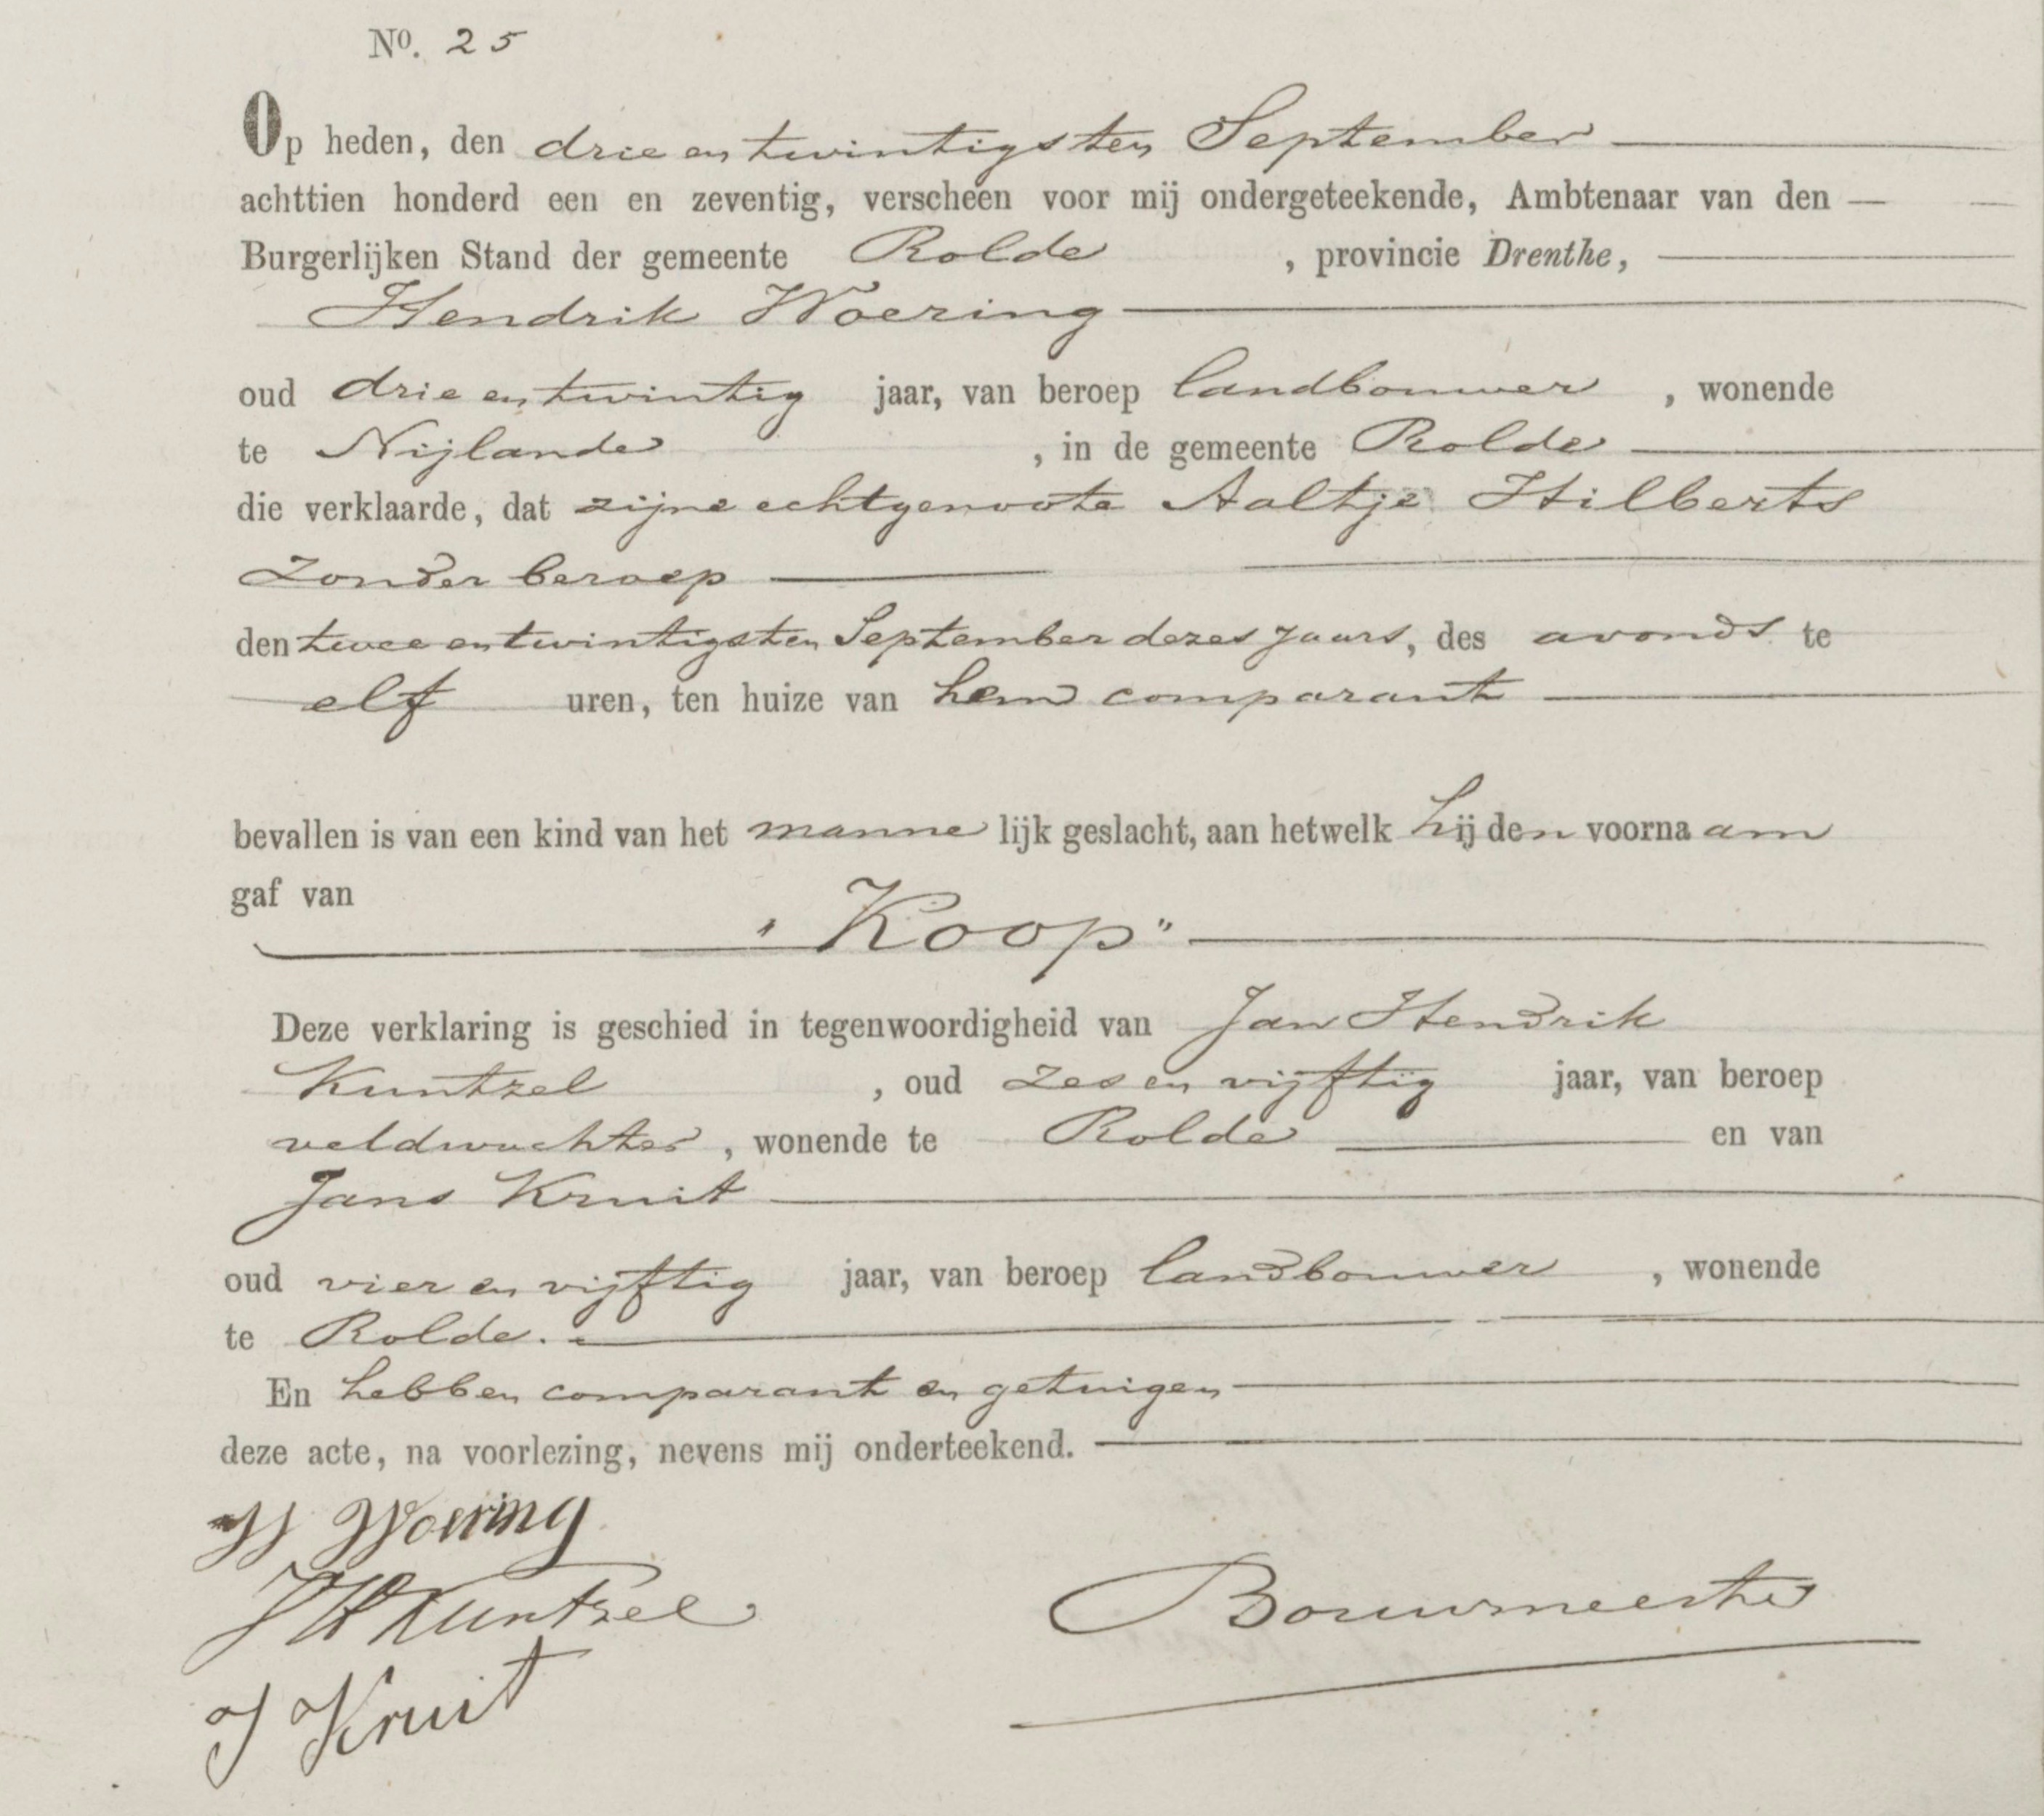 No. 25
Op heden, den drie en twintigsten September
achttien honderd een en zeventig, verscheen voor mij ondergeteekende, Ambtenaar van den
Burgerlijken Stand der gemeente Rolde, provincie Drenthe,
Hendrik Woering
oud drie en twintig jaar, van beroep landbouwer, wonende
te Nijlande, in de gemeente Rolde
die verklaarde, dat zijne echtgenoote Aaltje Hilberts
zonder beroep
den twee en twintigsten September dezes jaars, des avonds te
elf uren, ten huize van hem comparant
bevallen is van een kind van het mannelijk geslacht, aan hetwelk hij den voornaam
gaf van
"Koop"
Deze verklaring is geschied in tegenwoordigheid van Jan Hendrik
Kuntzel, oud zes en vijftig jaar, van beroep
veldwachter, wonende te Rolde en van
Jans Kruit
oud vier en vijftig jaar, van beroep landbouwer, wonende
te Rolde.
En hebben comparant en getuigen
deze acte, na voorlezing, nevens mij onderteekend.
H Woering
JH Kuntzel
J Kruit
Bouwmeester